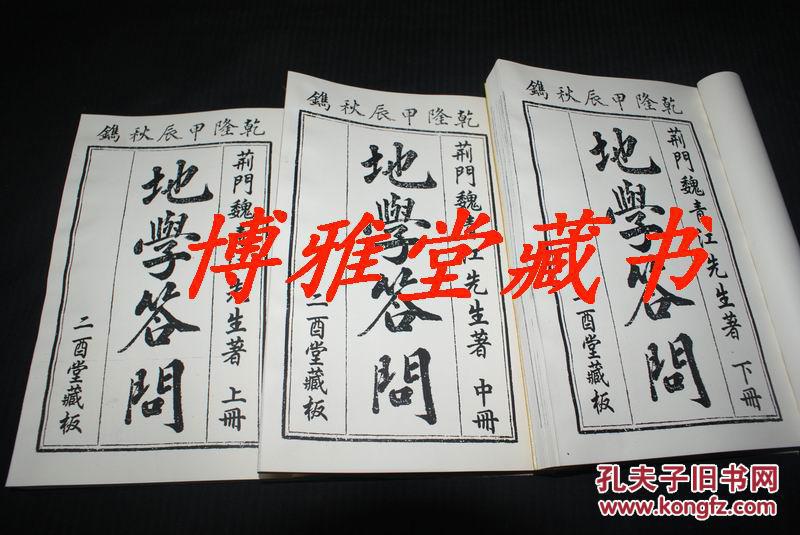 乾隆甲辰秋鐫
荊門魏
先生著 上冊
地學答問
二酉堂藏板
乾隆甲辰秋鐫
荊門魏青江先生著 中冊
地學答問
二酉堂藏板
乾隆甲辰秋鐫
荊門魏青江先生著 下冊
地學答問
酉堂藏板
博雅堂藏书
孔夫子旧书网
www.kongfz.com